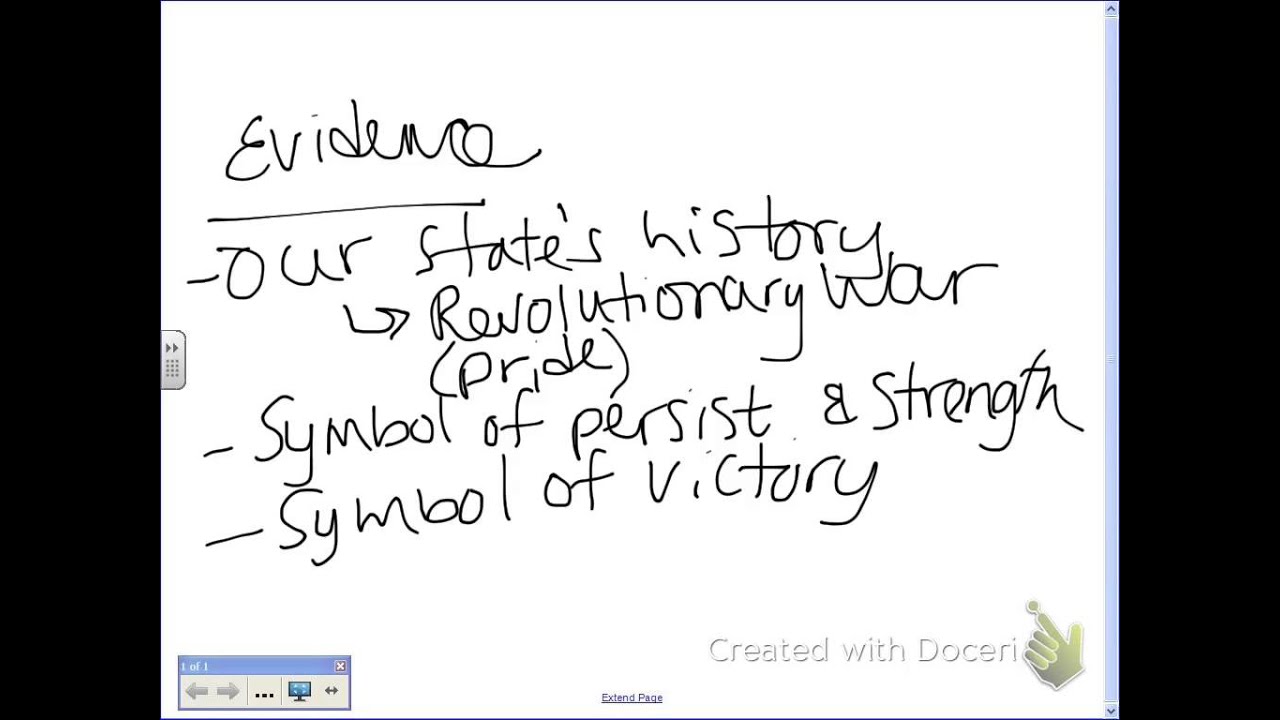 Evidence
- Our state's history
↳ Revolutionary War
(pride)
- Symbol of persist & strength
- Symbol of victory
Created with Doceri
1 of 1
...
Extend Page